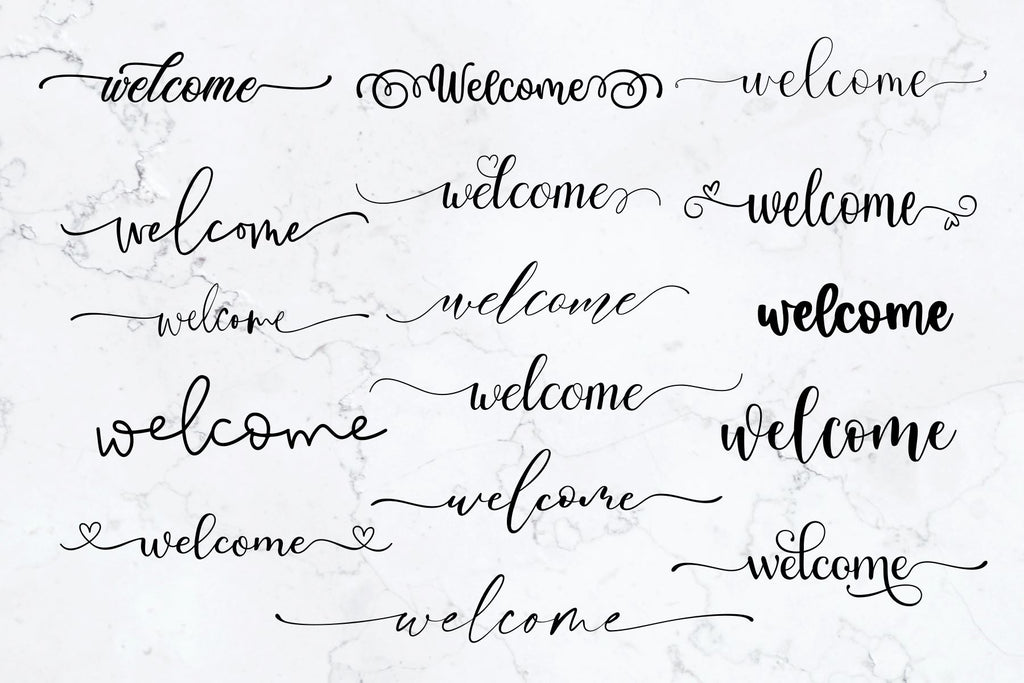 welcome
Welcome
welcome
welcome
welcome
welcome
welcome
welcome
welcome
welcome
welcome
welcome
welcome
welcome
welcome
welcome